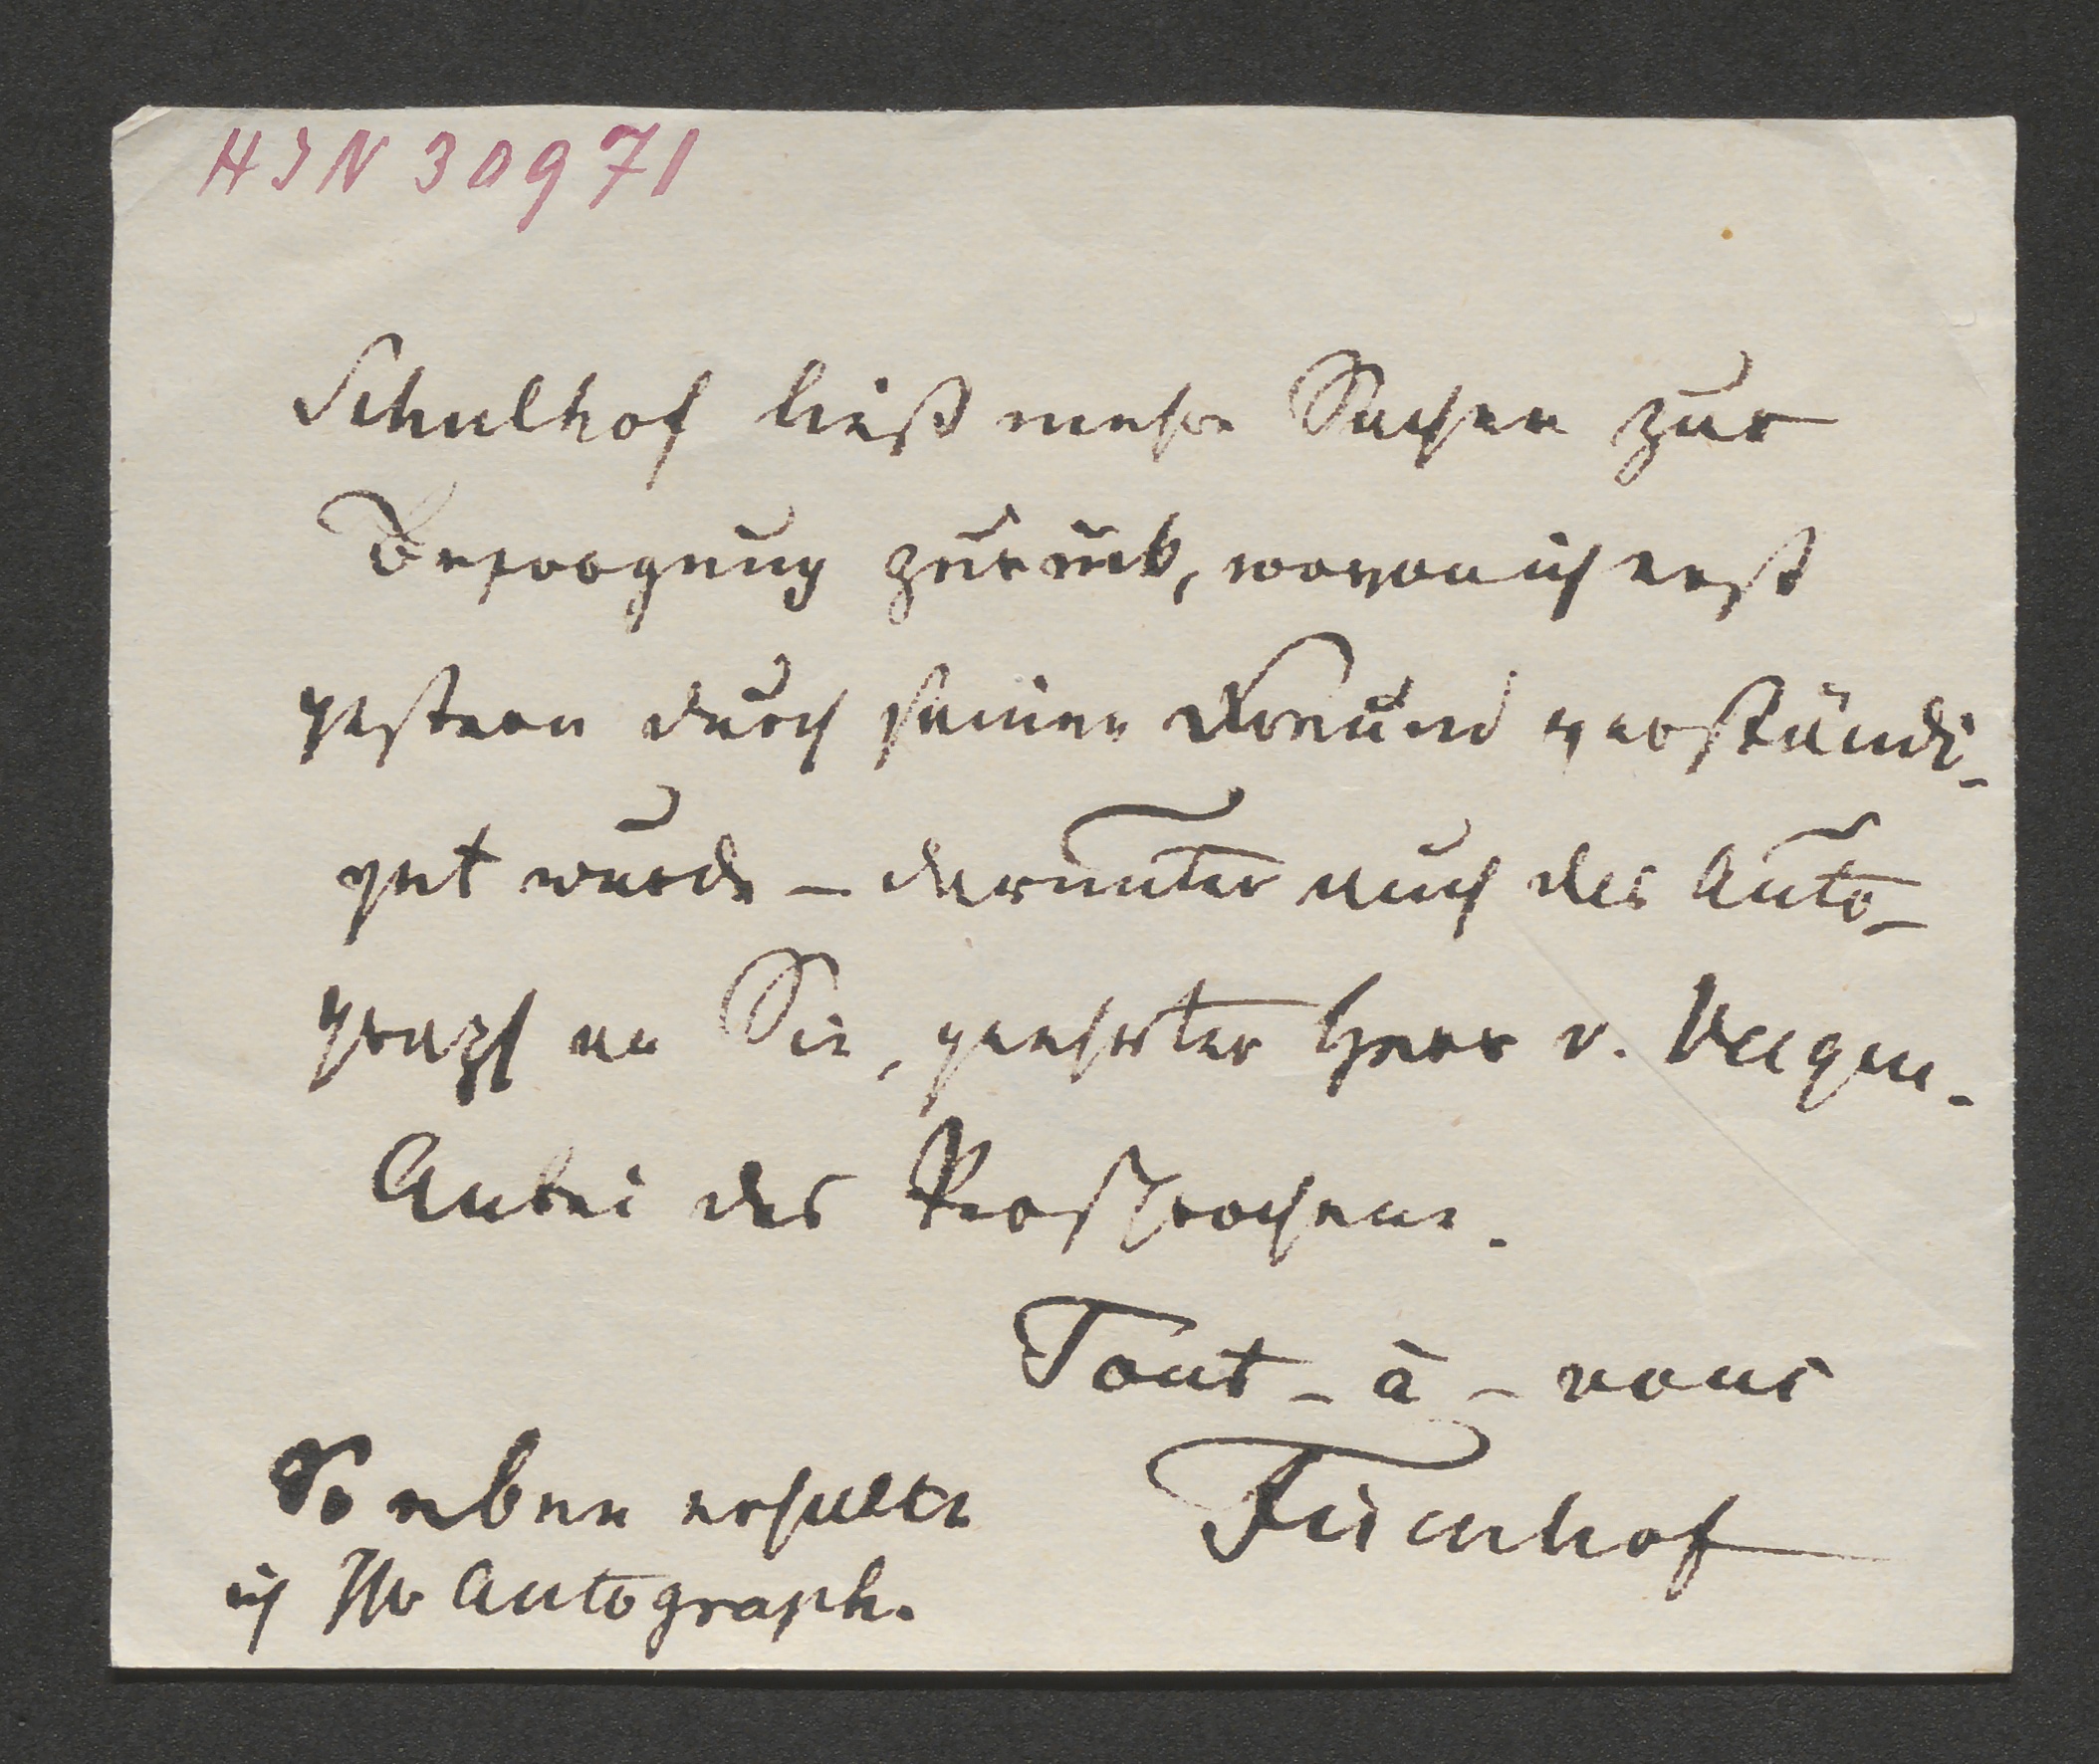 HJN 30971
Schulhof ließ mehre Sachen zur
Besorgung zurück, wovon ich erst
gestern durch seinen Freund verständi-
get wurde – darunter auch das Auto-
graph an Sie, geehrter Herr v.
Anbei das
Tout-à-vous
Fischhof
So eben erhalte
ich Ihr Autograph.